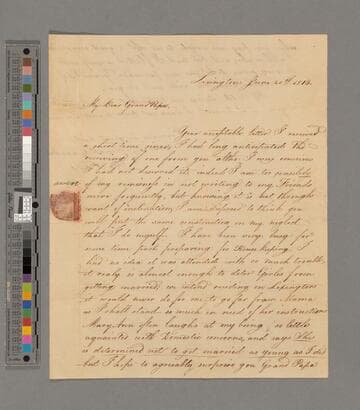 Lexington June 20th 1813.
My Dear Grand Papa,
Your acceptable letter I received
a short time since, I had long anticipated the
receiving of one from you altho' I was conscious
I had not deserved it, indeed I am so sensible
of my remissness in not writing to my Friends
more frequently, but knowing it is but thought-
want of inclination, I am induced to think you
will put the same construction on my neglect
that I do myself. I have been very busy for
some time past preparing for House keeping. I
had no idea it was attended with so much trouble
it realy is almost enough to deter Girls from
getting married, we intend residing in Lexington
it would never do for me to go far from Mama
as I shall stand so much in need of her instructions
Mary Ann often laughs at my being so little
aquainted with Domestic concerns, and says She
is determined not to get married as young as I do
but I hope to agreeably surprise you Grand Papa